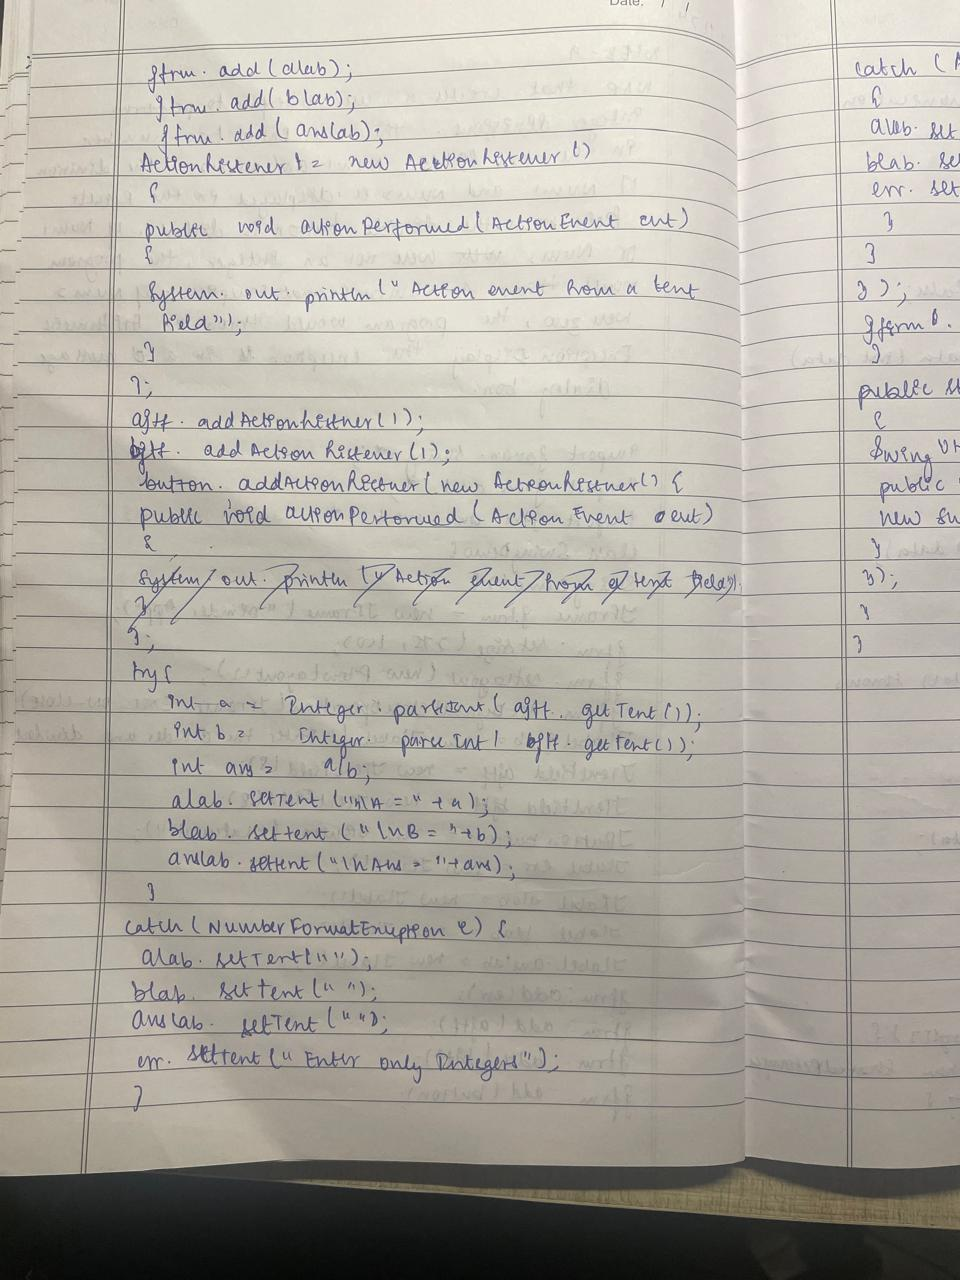 Date: / /
jfrm. add (alab);
jfrm. add( blab);
jfrm. add ( anslab);
ActionListener l = new ActionListener ()
{
public void actionPerformed (ActionEvent evt)
{
System. out. println (" Action event from a text
field");
}
};
ajtf. addActionListner(l);
bjtf. addAction Listener (l);
button. addActionListner( new ActionListner() {
public void actionPerformed ( Action Event evt)
{
System. out. println (" Action event from a text field");
}
};
try{
int a = Integer. parseInt ( ajtf. getText ());
int b = Integer. parse Int ( bjtf. getText());
int ans = a/b;
alab. setText ("\nA = " + a);
blab. settext (" \nB = "+b);
anslab. settext ("\n Ans = "+ ans);
}
catch ( NumberFormatException e) {
alab. setText(" ");
blab. set text (" ");
anslab. setText (" ");
err. settext (" Enter only Integers");
}
catch (A
{
alab. set
blab. se
err. set
}
}
});
jfrm.
}
public st
{
Swing Ut
public
new Sw
}
});
}
}